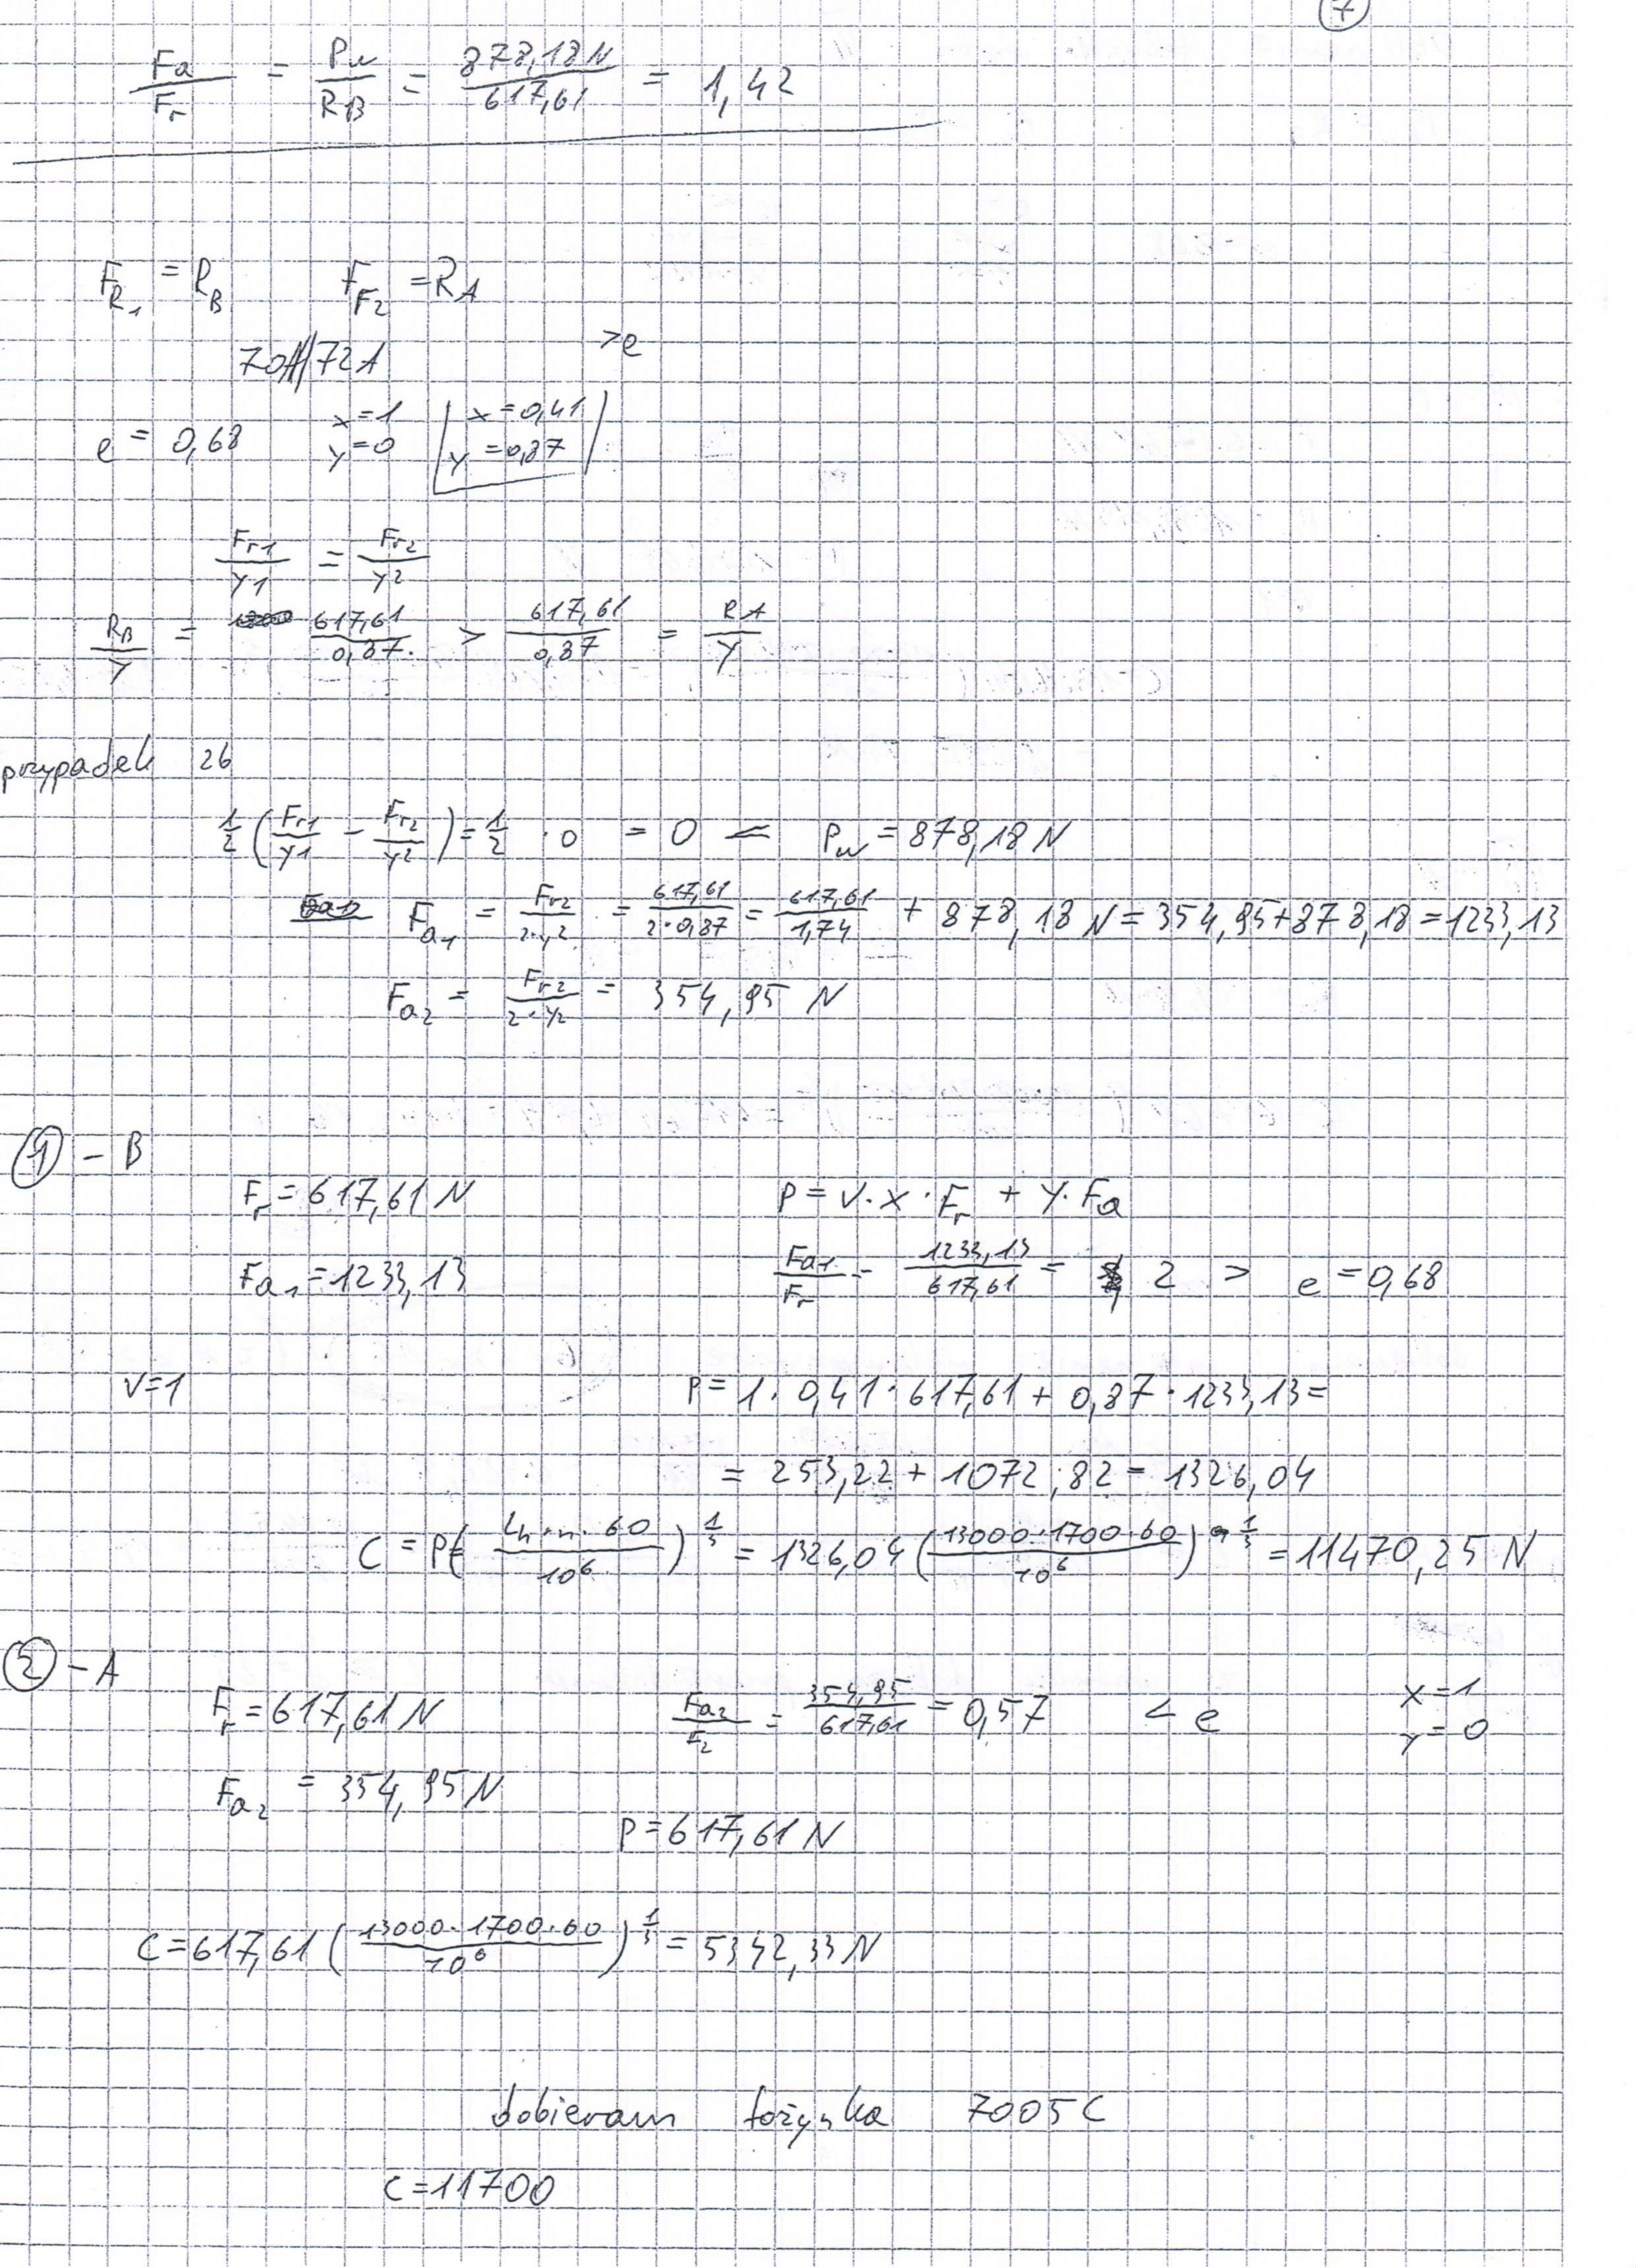 7
Fa/Fr = Pw/RB = 878,18 N/617,61 = 1,42
F_R1 = R_B F_F2 = R_A
70A//72A >e
e = 0,68 x=1 y=0 | x=0,41 y=0,87 |
Fr1/y1 = Fr2/y2
RB/Y = 617,61/0,87. > 617,61/0,87 = RA/Y
przypadek 2b
1/2 (Fr1/y1 - Fr2/y2) = 1/2 · 0 = 0 < Pw = 878,18 N
Fa1 = Fr2/2·y2 = 617,61/2·0,87 = 617,61/1,74 + 878,18 N = 354,95+878,18 = 1233,13
Fa2 = Fr2/2·y2 = 354,95 N
① - B
Fr = 617,61 N P = V·x·Fr + y·Fa
Fa1 = 1233,13 Fa1/Fr = 1233,13/617,61 = 2 > e = 0,68
V=1 P = 1·0,41·617,61 + 0,87·1233,13 =
= 253,22 + 1072,82 = 1326,04
C = P( Lh·n·60/10^6 )^1/3 = 1326,04 ( 13000·1700·60/10^6 )^1/3 = 11470,25 N
② - A
Fr = 617,61 N Fa2/F2 = 354,95/617,61 = 0,57 < e x=1 y=0
Fa2 = 354,95 N
P = 617,61 N
C = 617,61 ( 13000·1700·60/10^6 )^1/3 = 5342,33 N
dobieram łożyska 7005C
C=11700